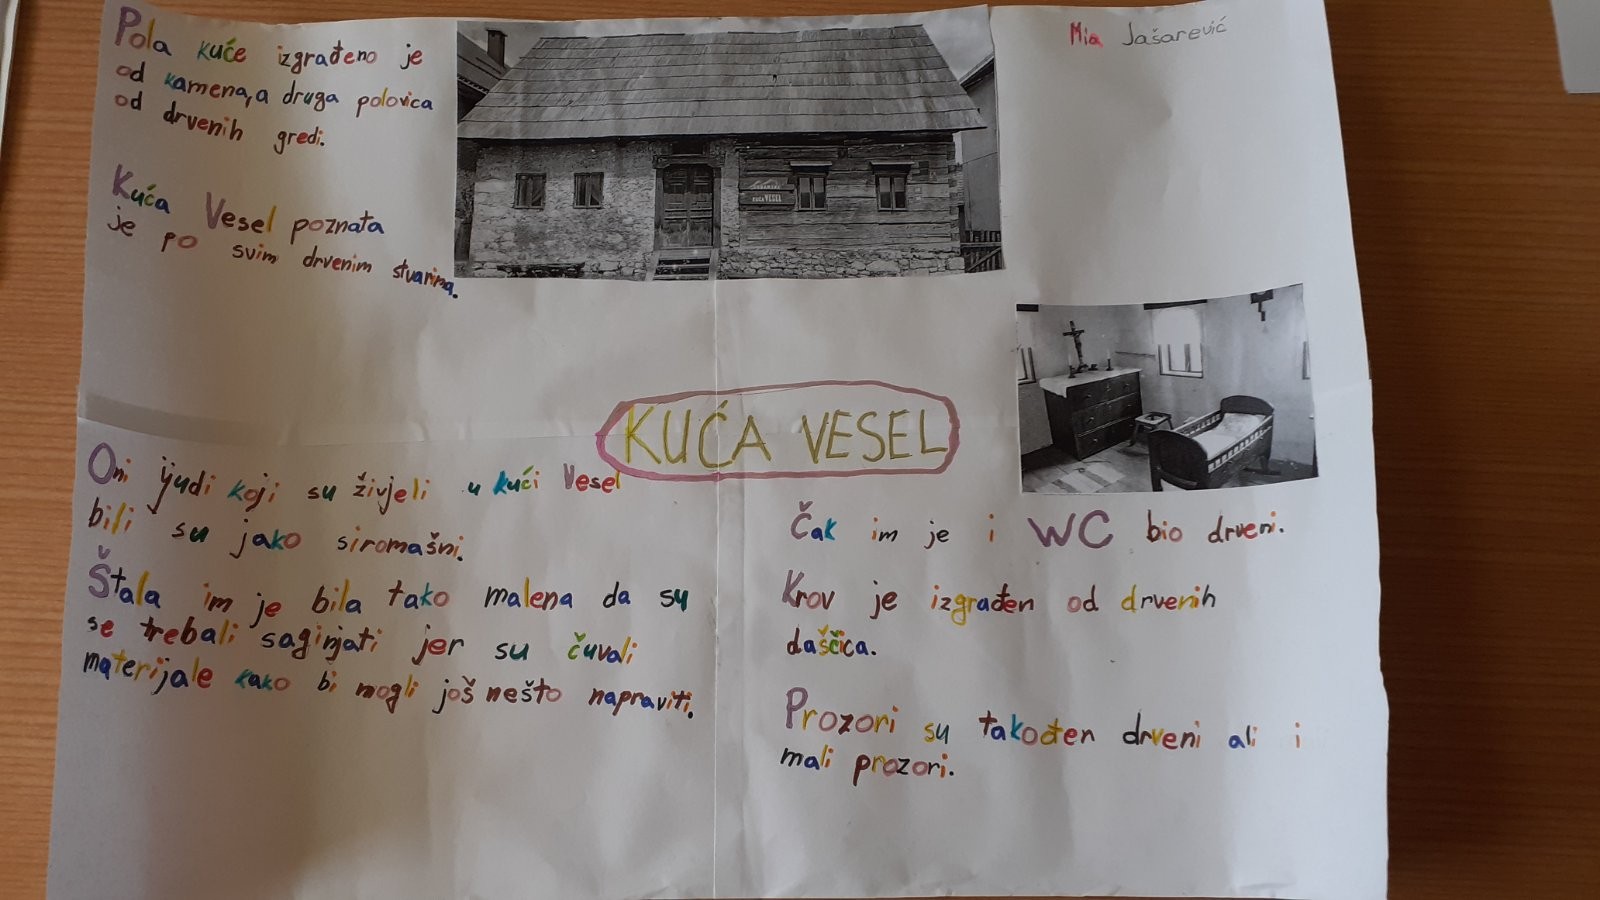 Pola kuće izgrađeno je
od kamena, a druga polovica
od drvenih gredi.
Kuća Vesel poznata
je po svim drvenim stvarima.
Mia Jašarević
KUĆA VESEL
KUĆA VESEL
Oni ljudi koji su živjeli u kući Vesel
bili su jako siromašni.
Štala im je bila tako malena da su
se trebali saginjati jer su čuvali
materijale kako bi mogli još nešto napraviti.
Čak im je i WC bio drveni.
Krov je izgrađen od drvenih
daščica.
Prozori su također drveni ali i
mali prozori.